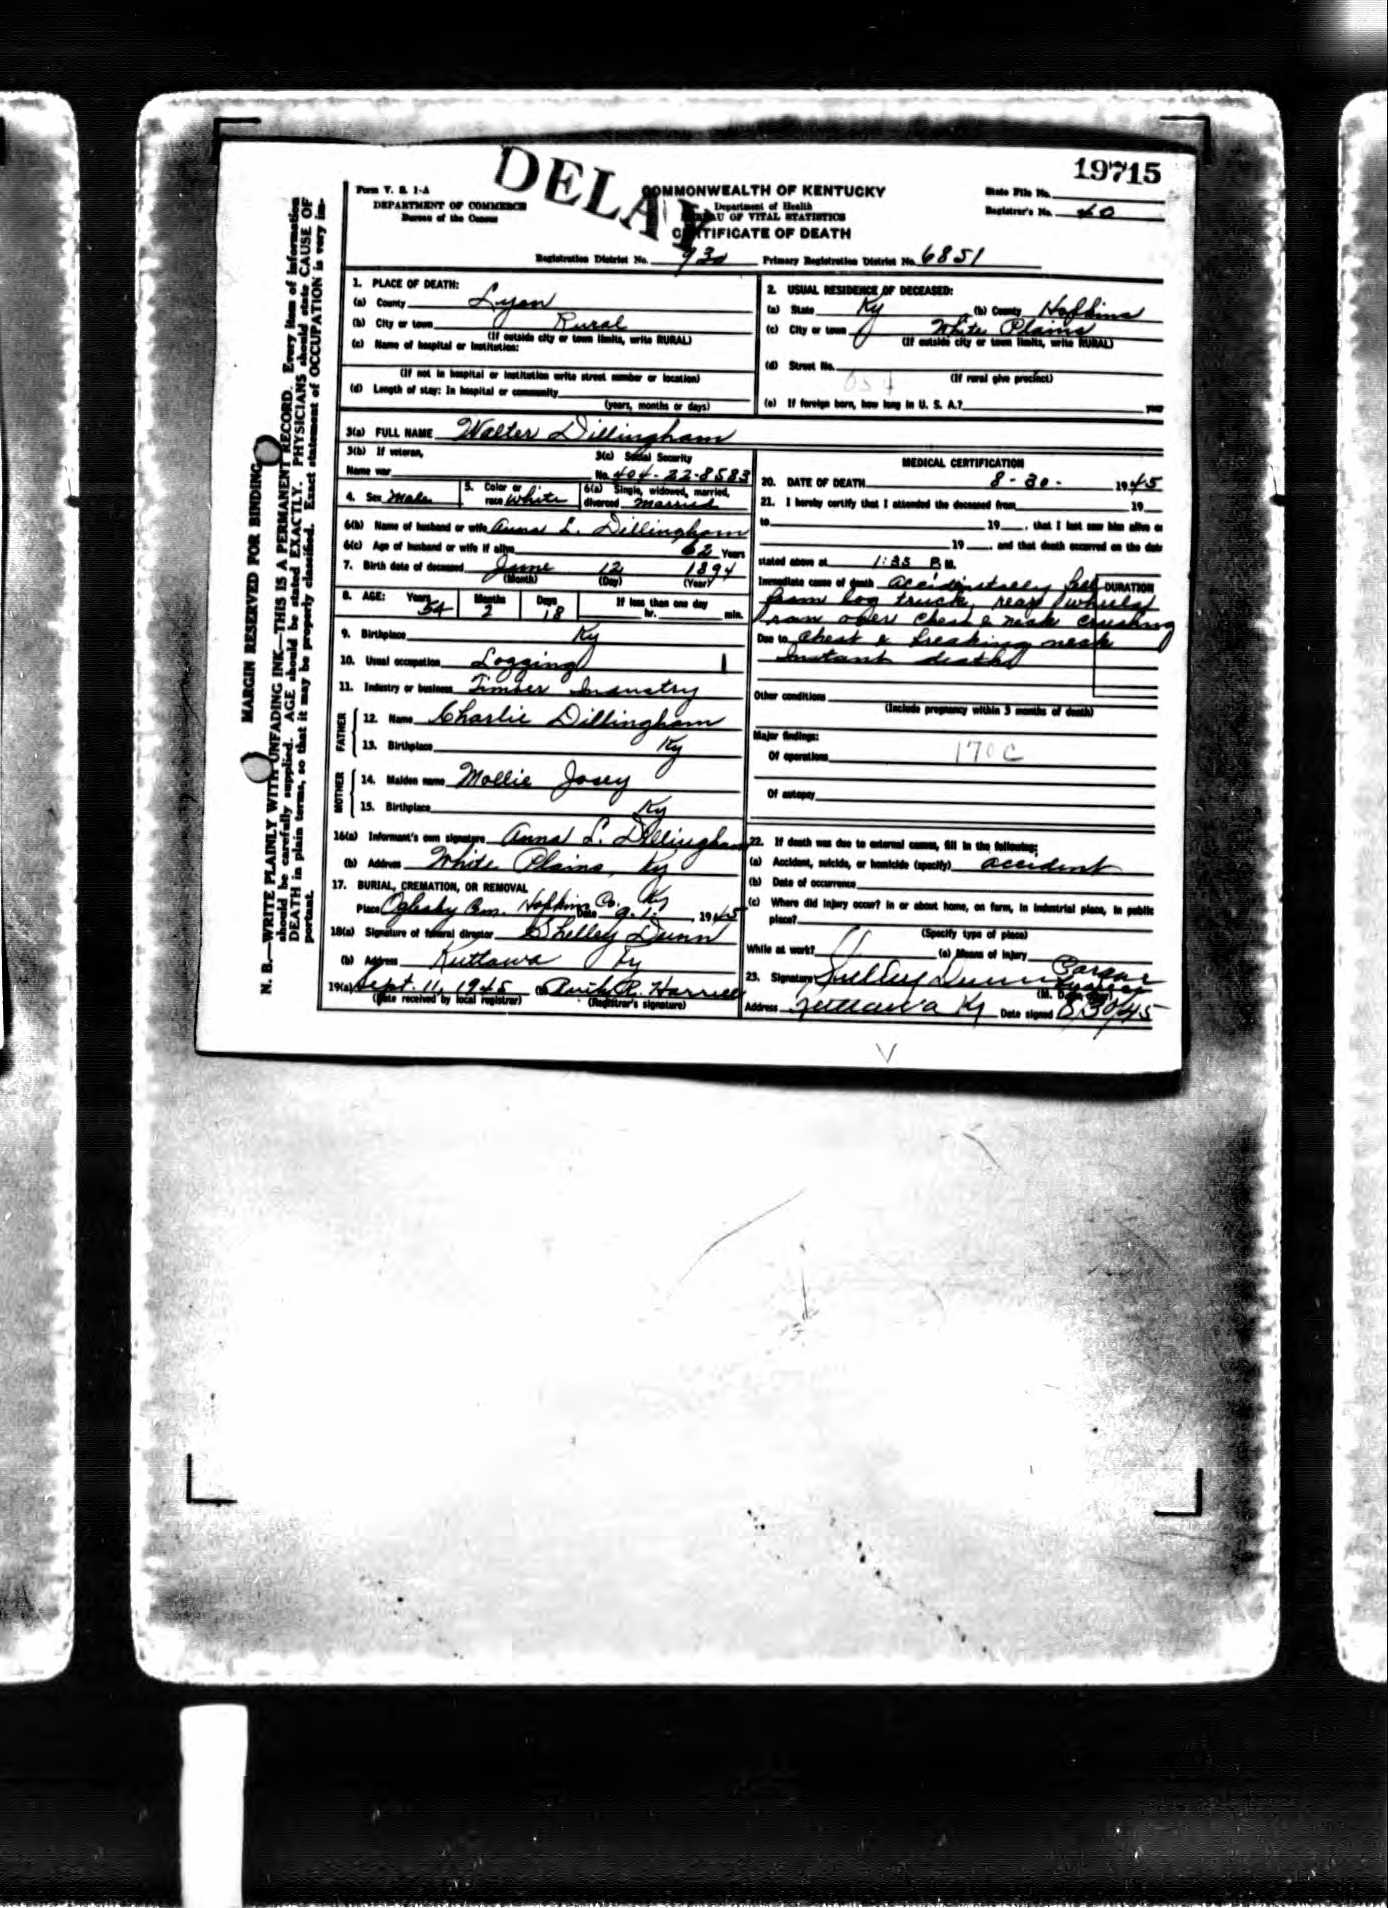 19715
DELAY
Form V. S. 1-A
DEPARTMENT OF COMMERCE
Bureau of the Census
COMMONWEALTH OF KENTUCKY
Department of Health
BUREAU OF VITAL STATISTICS
CERTIFICATE OF DEATH
State File No.
Registrar's No. 40
Registration District No. 930 Primary Registration District No. 6851
MARGIN RESERVED FOR BINDING
N. B.—WRITE PLAINLY WITH UNFADING INK—THIS IS A PERMANENT RECORD. Every item of information
should be carefully supplied. AGE should be stated EXACTLY. PHYSICIANS should state CAUSE OF
DEATH in plain terms, so that it may be properly classified. Exact statement of OCCUPATION is very im-
portant.
1. PLACE OF DEATH:
(a) County Lyon
(b) City or town Rural
(If outside city or town limits, write RURAL)
(c) Name of hospital or institution:
(If not in hospital or institution write street number or location)
(d) Length of stay: In hospital or community
(years, months or days)
2. USUAL RESIDENCE OF DECEASED:
(a) State Ky (b) County Hopkins
(c) City or town White Plains
(If outside city or town limits, write RURAL)
(d) Street No.
(If rural give precinct)
(e) If foreign born, how long in U. S. A.? year
3(a) FULL NAME Walter Dillingham
3(b) If veteran,
Name war
3(c) Social Security
No. 404-22-8583
4. Sex Male
5. Color or
race White
6(a) Single, widowed, married,
divorced married
6(b) Name of husband or wife Anna L. Dillingham
6(c) Age of husband or wife if alive 62 Years
7. Birth date of deceased June 12 1894
(Month) (Day) (Year)
8. AGE: Years 54 Months 2 Days 18 If less than one day
hr. min.
9. Birthplace Ky
10. Usual occupation Logging
11. Industry or business Timber Industry
FATHER
12. Name Charlie Dillingham
13. Birthplace Ky
MOTHER
14. Maiden name Mollie Josey
15. Birthplace Ky
16(a) Informant's own signature Anna L. Dillingham
(b) Address White Plains, Ky
17. BURIAL, CREMATION, OR REMOVAL
Place Oglesby Cem. Hopkins Co. Ky Date 9-1- , 1945
18(a) Signature of funeral director Shelley Dunn
(b) Address Kuttawa Ky
19(a) Sept. 11, 1945 (b) Ruth R. Harrell
(Date received by local registrar) (Registrar's signature)
MEDICAL CERTIFICATION
20. DATE OF DEATH 8-30- 1945
21. I hereby certify that I attended the deceased from 19
to 19 , that I last saw him alive on
19 , and that death occurred on the date
stated above at 1:35 P M.
Immediate cause of death accidentally fell DURATION
from log truck, rear wheels
ran over chest & neck crushing
Due to chest & breaking neck
Instant death
Other conditions
(Include pregnancy within 3 months of death)
Major findings:
Of operations 170c
Of autopsy
22. If death was due to external causes, fill in the following:
(a) Accident, suicide, or homicide (specify) accident
(b) Date of occurrence
(c) Where did injury occur? in or about home, on farm, in industrial place, in public
place?
(Specify type of place)
While at work? (e) Means of injury
23. Signature Shelley Dunn Coroner
(M. D.
Address Kuttawa Ky Date signed 8/30/45